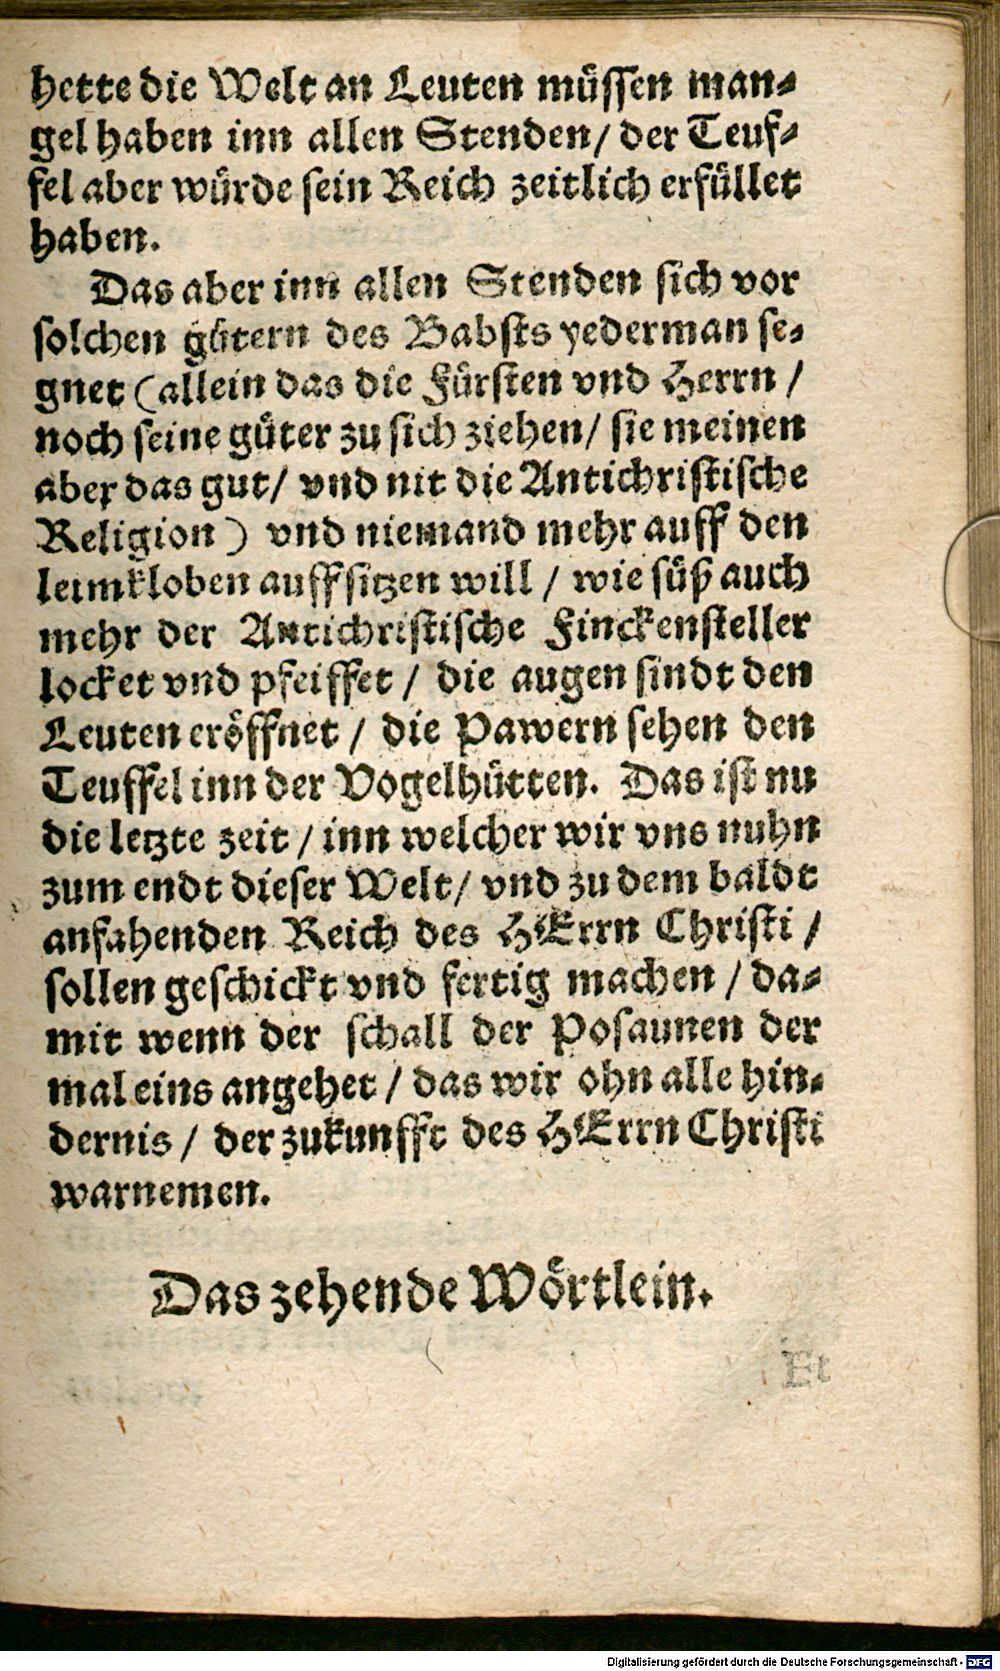 hette die Welt an Leuten müssen man-
gel haben inn allen Stenden / der Teuf-
fel aber würde sein Reich zeitlich erfüllet
haben.
Das aber inn allen Stenden sich vor
solchen gütern des Babsts yederman se-
gnet (allein das die Fürsten vnd Herrn /
noch seine güter zu sich ziehen / sie meinen
aber das gut / vnd nit die Antichristische
Religion) vnd niemand mehr auff den
leimkloben auffsitzen will / wie süß auch
mehr der Antichristische Finckensteller
locket vnd pfeiffet / die augen sindt den
Leuten eröffnet / die Pawern sehen den
Teuffel inn der Vogelhütten. Das ist nu
die letzte zeit / inn welcher wir vns nuhn
zum endt dieser Welt / vnd zu dem baldt
anfahenden Reich des HErrn Christi /
sollen geschickt vnd fertig machen / da-
mit wenn der schall der Posaunen der
mal eins angehet / das wir ohn alle hin-
dernis / der zukunfft des HErrn Christi
warnemen.
Das zehende Wörtlein.
Et
Digitalisierung gefördert durch die Deutsche Forschungsgemeinschaft - DFG